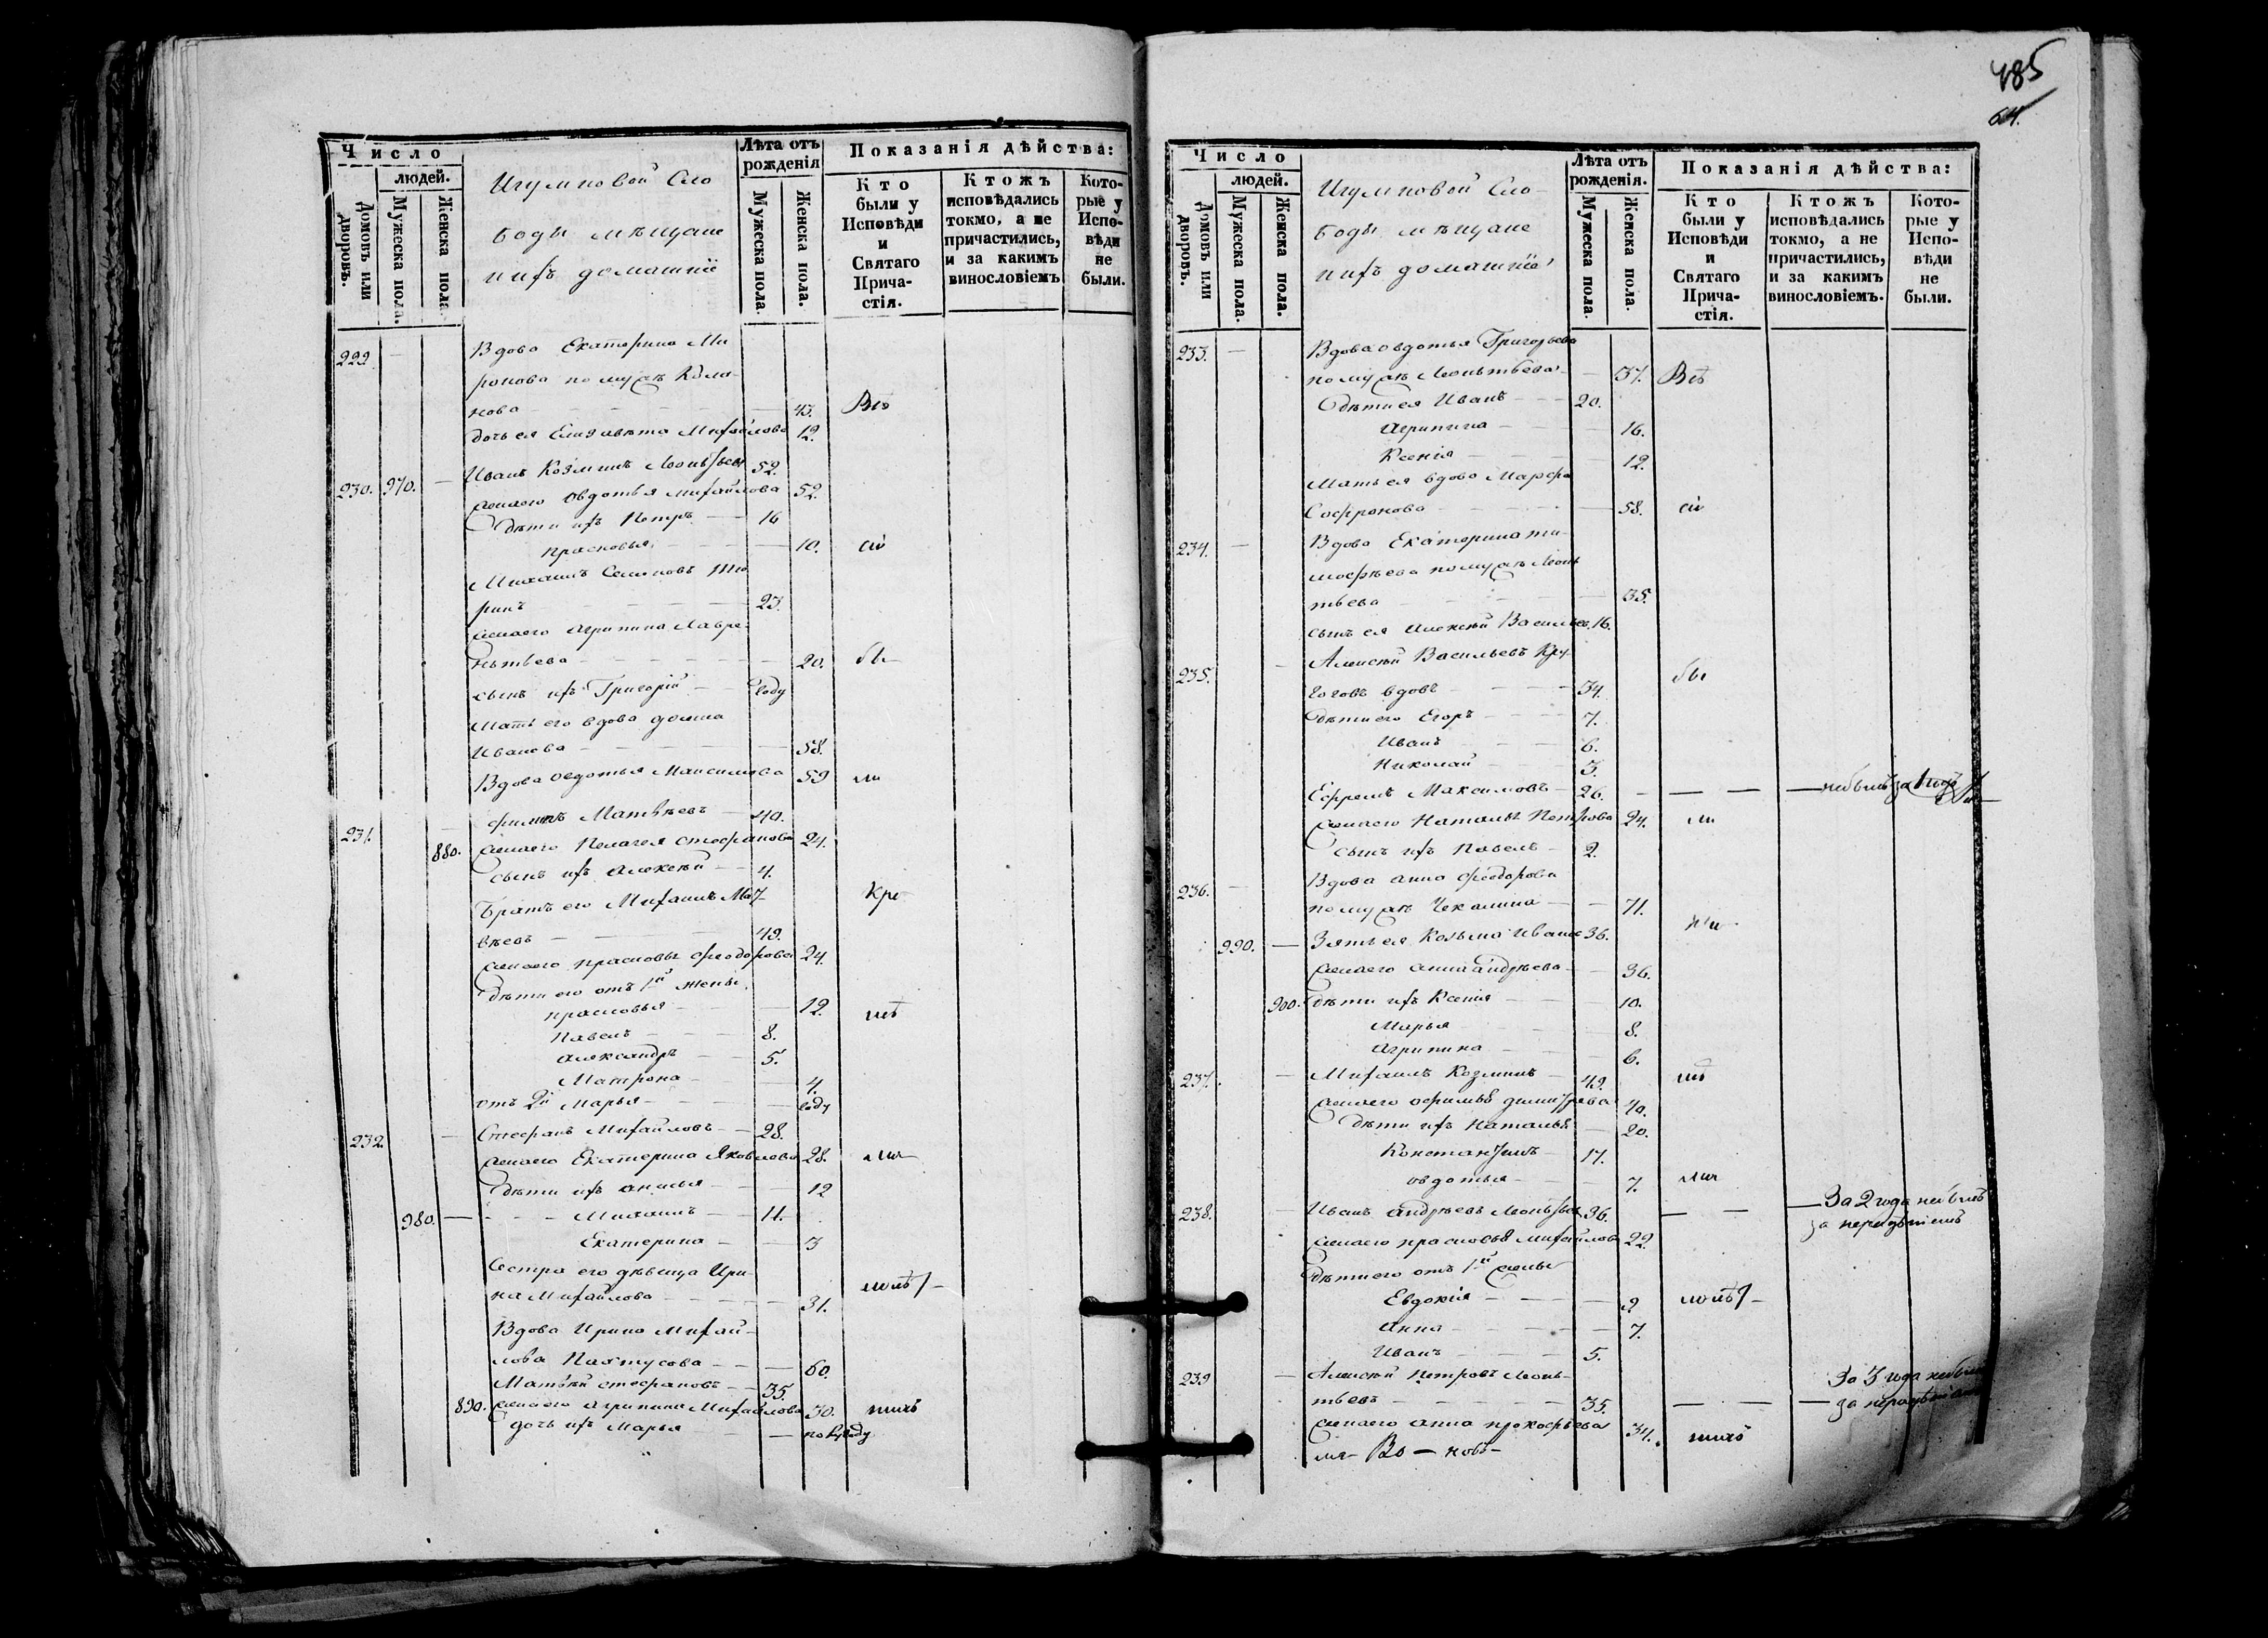 Число
людей.
Домовъ или дворовъ.
Мужеска пола.
Женска пола.
Игумновой Сло
боды мѣщане
ихъ домашніе
Лѣта отъ рожденія
Мужеска пола.
Женска пола.
Показанія дѣйства:
Кто были у Исповѣди и Святаго Прича- стія.
Ктожъ исповѣдались токмо, а не причастились, и за какимъ винословіемъ
Кото- рые у Испо- вѣди не были.
229 — Вдова Екатерина Ми
ронова по мужѣ
нова — 43. Всѣ
дочь ея Елизавета Михайлова 12.
230. 970. — Иванъ Козминъ Леонтьевъ 52.
жена его Овдотья Михайлова 52.
дѣти ихъ Петръ — 16
Прасковья — 10. сіи
Михаилъ Семеновъ Тю
ринъ — 23.
жена его Агрипина Лавре-
нтьева — 20. бы-
сынъ ихъ Григорій — году
Мать его вдова Домна
Иванова — 58.
Вдова Овдотья Максимова 59 ли
231. — Филипъ Матвѣевъ — 40.
880. жена его Пелагея Стефанова 24.
сынъ ихъ Алексѣй — 4.
Братъ его Михаилъ Мат-
вѣевъ — 49.
жена его Прасковья Феодорова 24.
дѣти его отъ 1й жены
Прасковья — 12.
Павелъ — 8.
Александръ — 5.
Матрона — 4.
отъ 2й Марья — году
232. — Стефанъ Михайловъ — 28.
жена его Екатерина Яковлева 28.
дѣти ихъ Анисья — 12
980. — Михаилъ — 11.
Екатерина — 3
Сестра его дѣвица Ири-
на Михайлова — 31.
Вдова Ирина Михай-
лова — 60.
Матвѣй Стефановъ — 35.
890. жена его Агрипина Михайлова 30.
дочь ихъ Марья — полугоду
485
64.
Число
людей.
Домовъ или дворовъ.
Мужеска пола.
Женска пола.
Игумновой Сло
боды мѣщане
ихъ домашніе
Лѣта отъ рожденія.
Мужеска пола.
Женска пола.
Показанія дѣйства:
Кто были у Исповѣди и Святаго Прича- стія.
Ктожъ исповѣдались токмо, а не причастились, и за какимъ винословіемъ.
Кото- рые у Испо- вѣди не были.
233. — Вдова Овдотья Григорьева
по мужѣ Леонтьева — 37. Всѣ
дѣти ея Иванъ — 20.
Агрипина — 16.
Ксенія — 12.
Мать ея вдова Марфа
Софронова — 58. сіи
234. — Вдова Екатерина Ти-
мофѣева по мужѣ Леон
тьева — 35.
сынъ ея Алексѣй Васильев. 16.
235. — Алексѣй Васильевъ Кру-
говъ вдовъ — 34. бы
дѣти его Егоръ — 7.
Иванъ — 6.
Николай — 3.
Ефремъ Максимовъ — 26. — — — небылъ за 1 годъ
жена его Наталья Петрова 24. ли
сынъ ихъ Павелъ — 2.
236. — Вдова Анна Феодорова
по мужѣ Чекалина — 71.
990. — Зять ея Козьма Иванов 36.
жена его Анна Андрѣева — 36.
900. дѣти ихъ Ксенія — 10.
Марья — 8.
Агрипина — 6.
237. — Михаилъ Козминъ — 49.
жена его Офимья Димитрева 40.
дѣти ихъ Наталья — 20.
Константинъ — 17.
Овдотья — 7.
238. Иванъ Андрѣевъ Леонтьев. 36. — — — За 2 года небылъ
за нерадѣніемъ
жена его Прасковья Михайлова 22.
дѣти его отъ 1й жены
Евдокія — 9
Анна — 7.
Иванъ — 5.
239 — Алексѣй Петровъ Леон-
тьевъ — 35. — — — За 3 года небылъ
за нерадѣніемъ
жена его Анна Прокофьева 34.